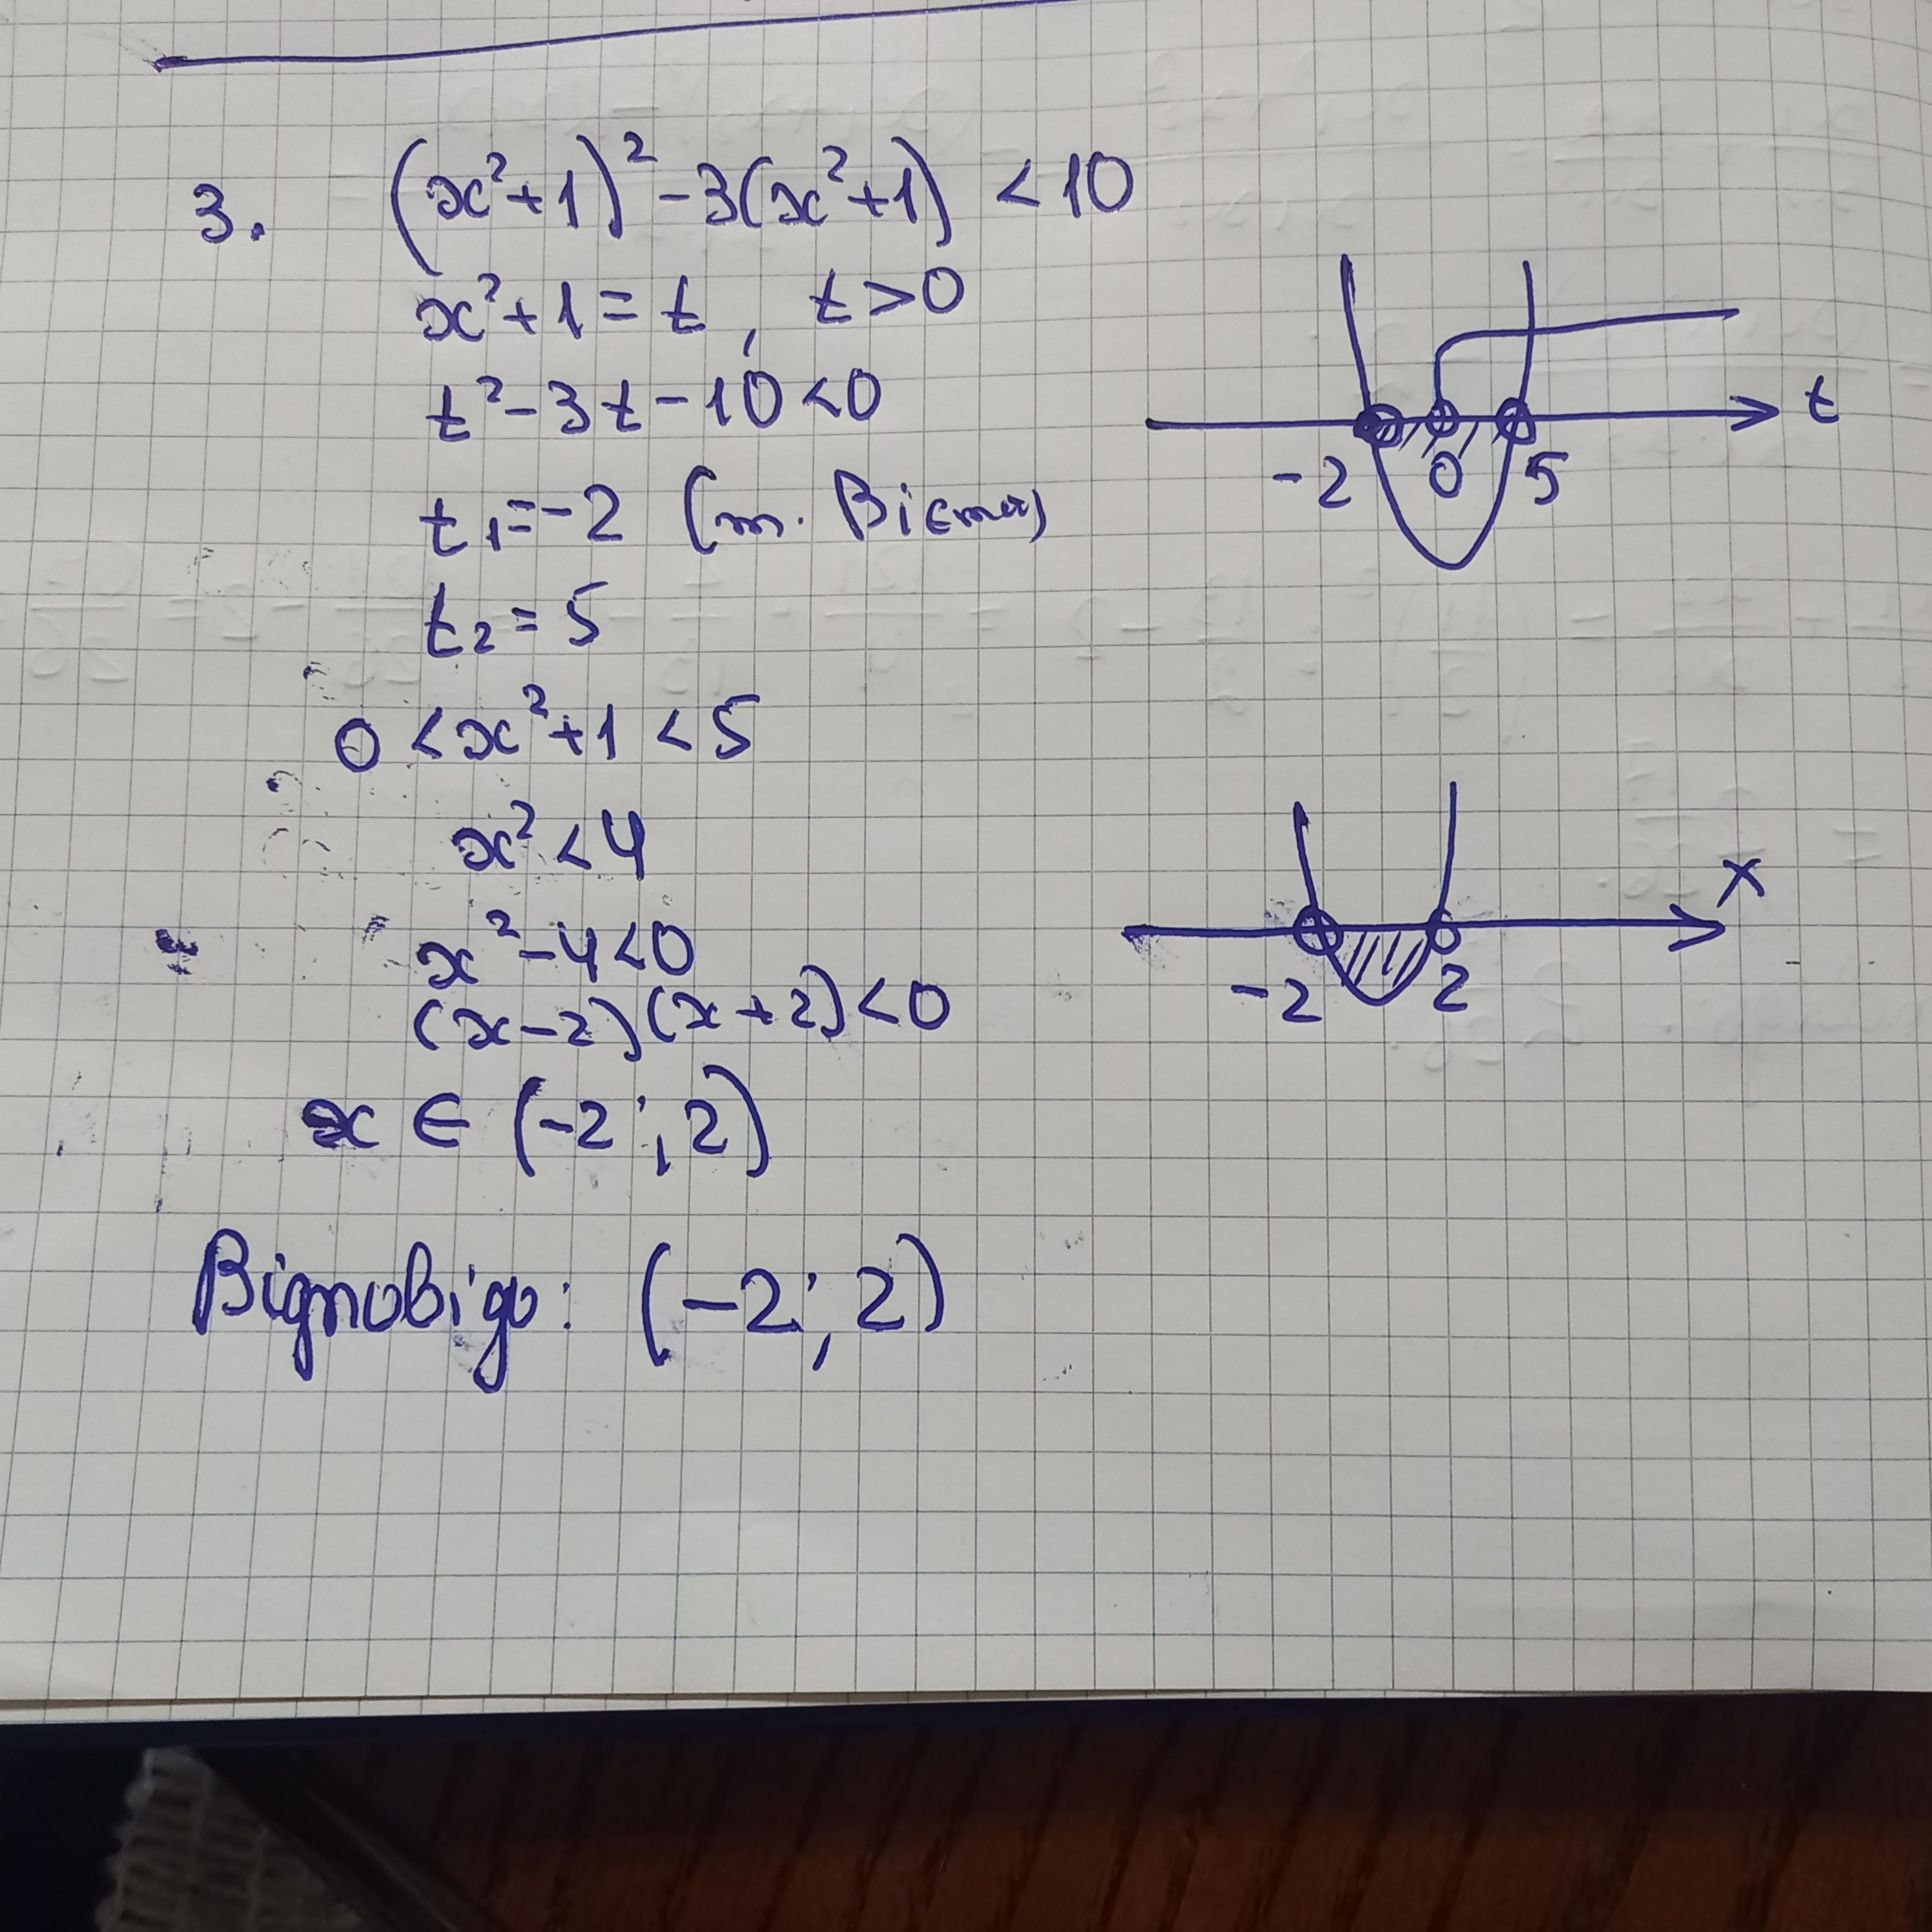 3. (x²+1)² - 3(x²+1) < 10
x²+1 = t, t > 0
t² - 3t - 10 < 0
t₁ = -2 (т. Вієта)
t₂ = 5
0 < x²+1 < 5
x² < 4
x² - 4 < 0
(x-2)(x+2) < 0
x ∈ (-2; 2)
Відповідь: (-2; 2)
t
-2 0 5
x
-2 2